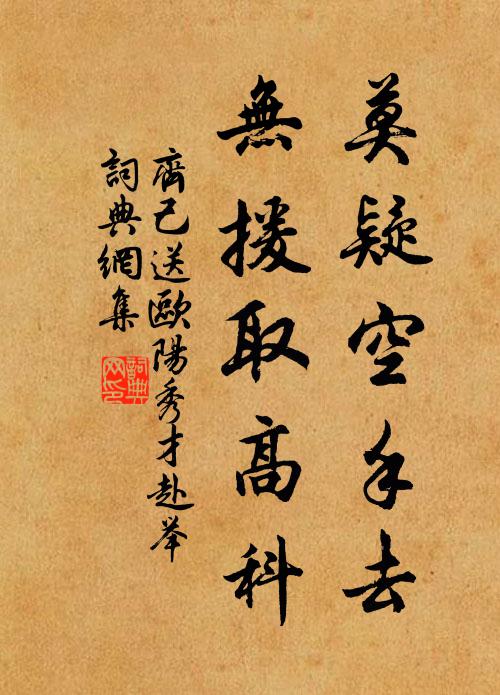 莫疑空手去
無援取高科
齊己送歐陽秀才赴举
詞典網集
詞典网印